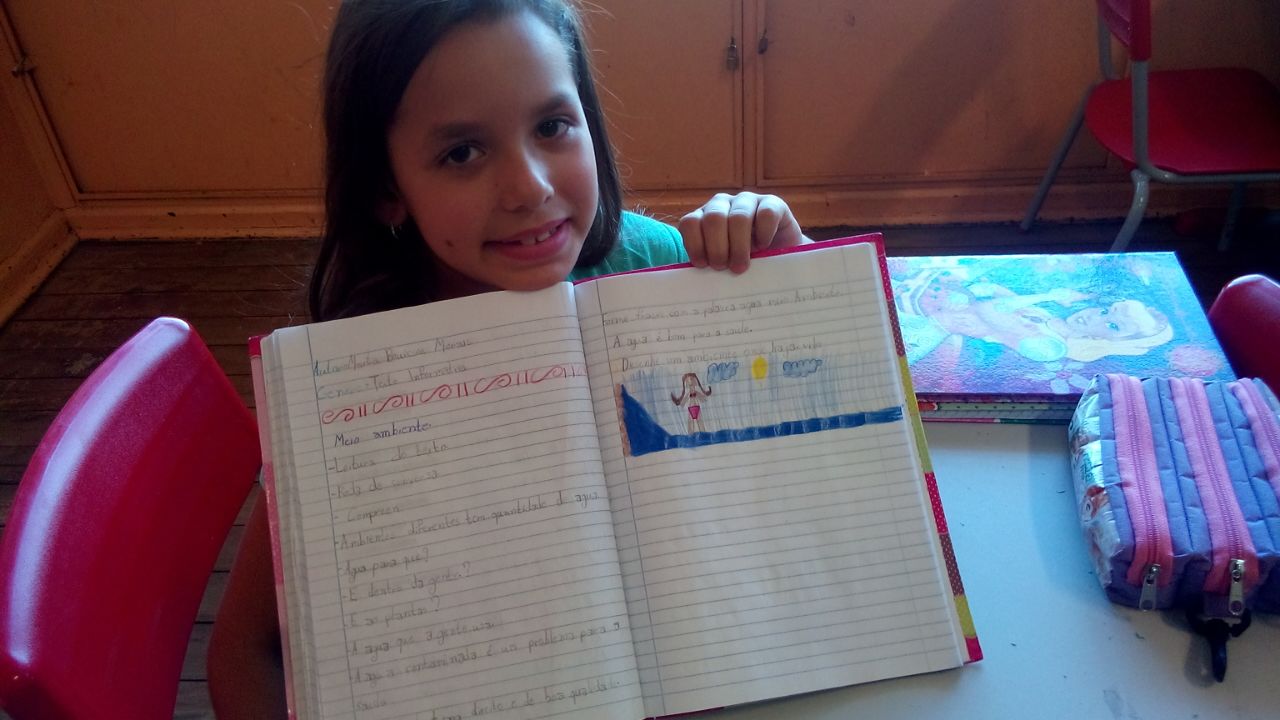 Gênero: Texto Informativo
Meio ambiente.
-Leitura do
-Roda de conversa
- Compreen
-Ambientes diferentes tem quantidade de agua
-Agua para que?
-E dentro da gente?
-E as plantas?
-A agua que a gente usa
-Agua contaminada é um problema para a
saúde
direito e de boa qualidade.
Forme frases com a palavra agua meio Ambiente.
A agua é bom para a saúde.
Desenhe um ambiente onde haja vida